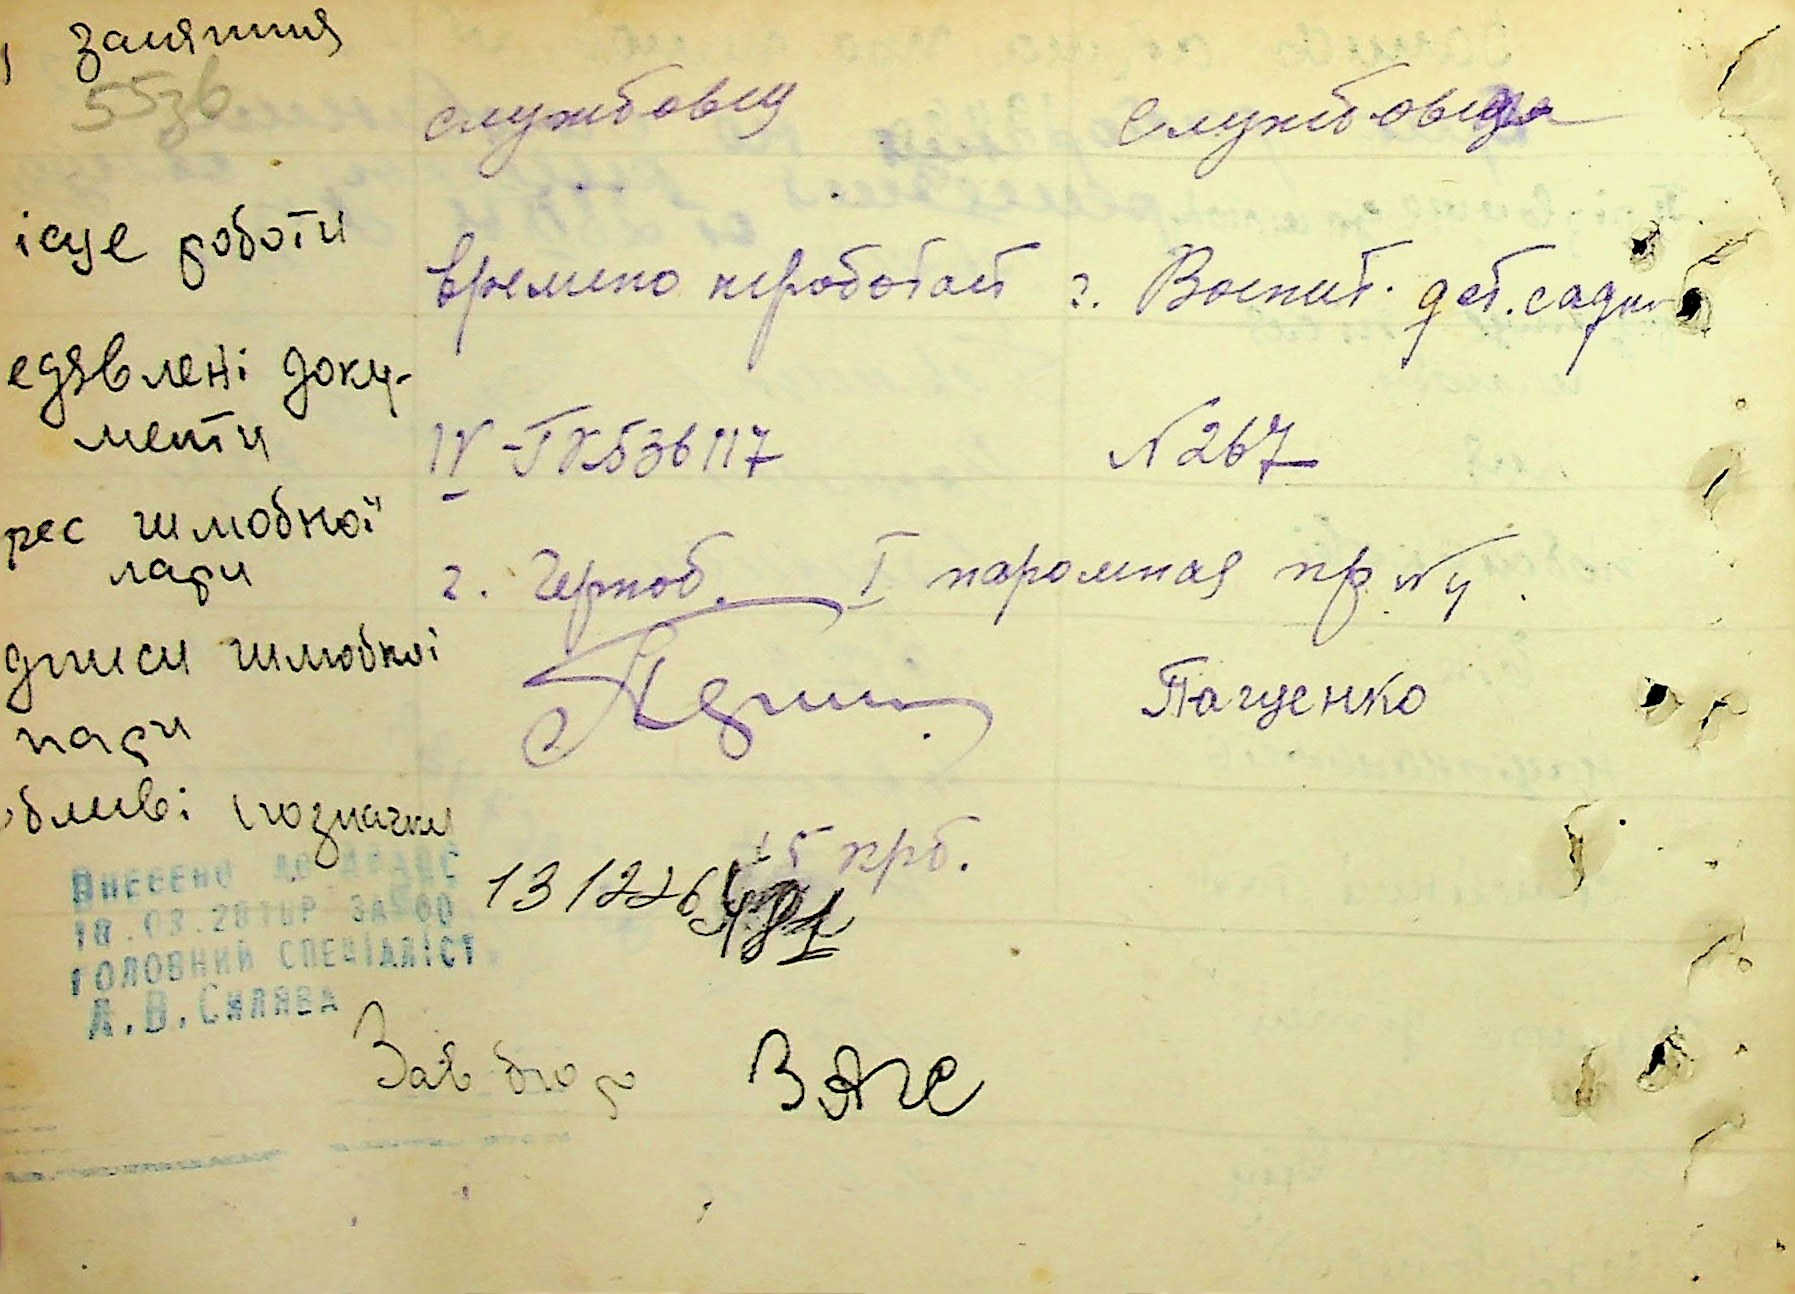 заняття
553б
службовец службовця
ісце роботи
времено неработает г. Воспит. дет. садка
едявлені доку-
менти
IV-ТК 536117 N 267
рес шлюбної
пари
г. Черноб. I паромная пр N 4
дписи шлюбної Пащенко
пари
бливі позначки
15 крб.
Внесено до ДРАЦС
131226
18.03.2010Р ЗА 00
481
ГОЛОВНИЙ СПЕЦІАЛІСТ
А.В.Силява
Зав бюр